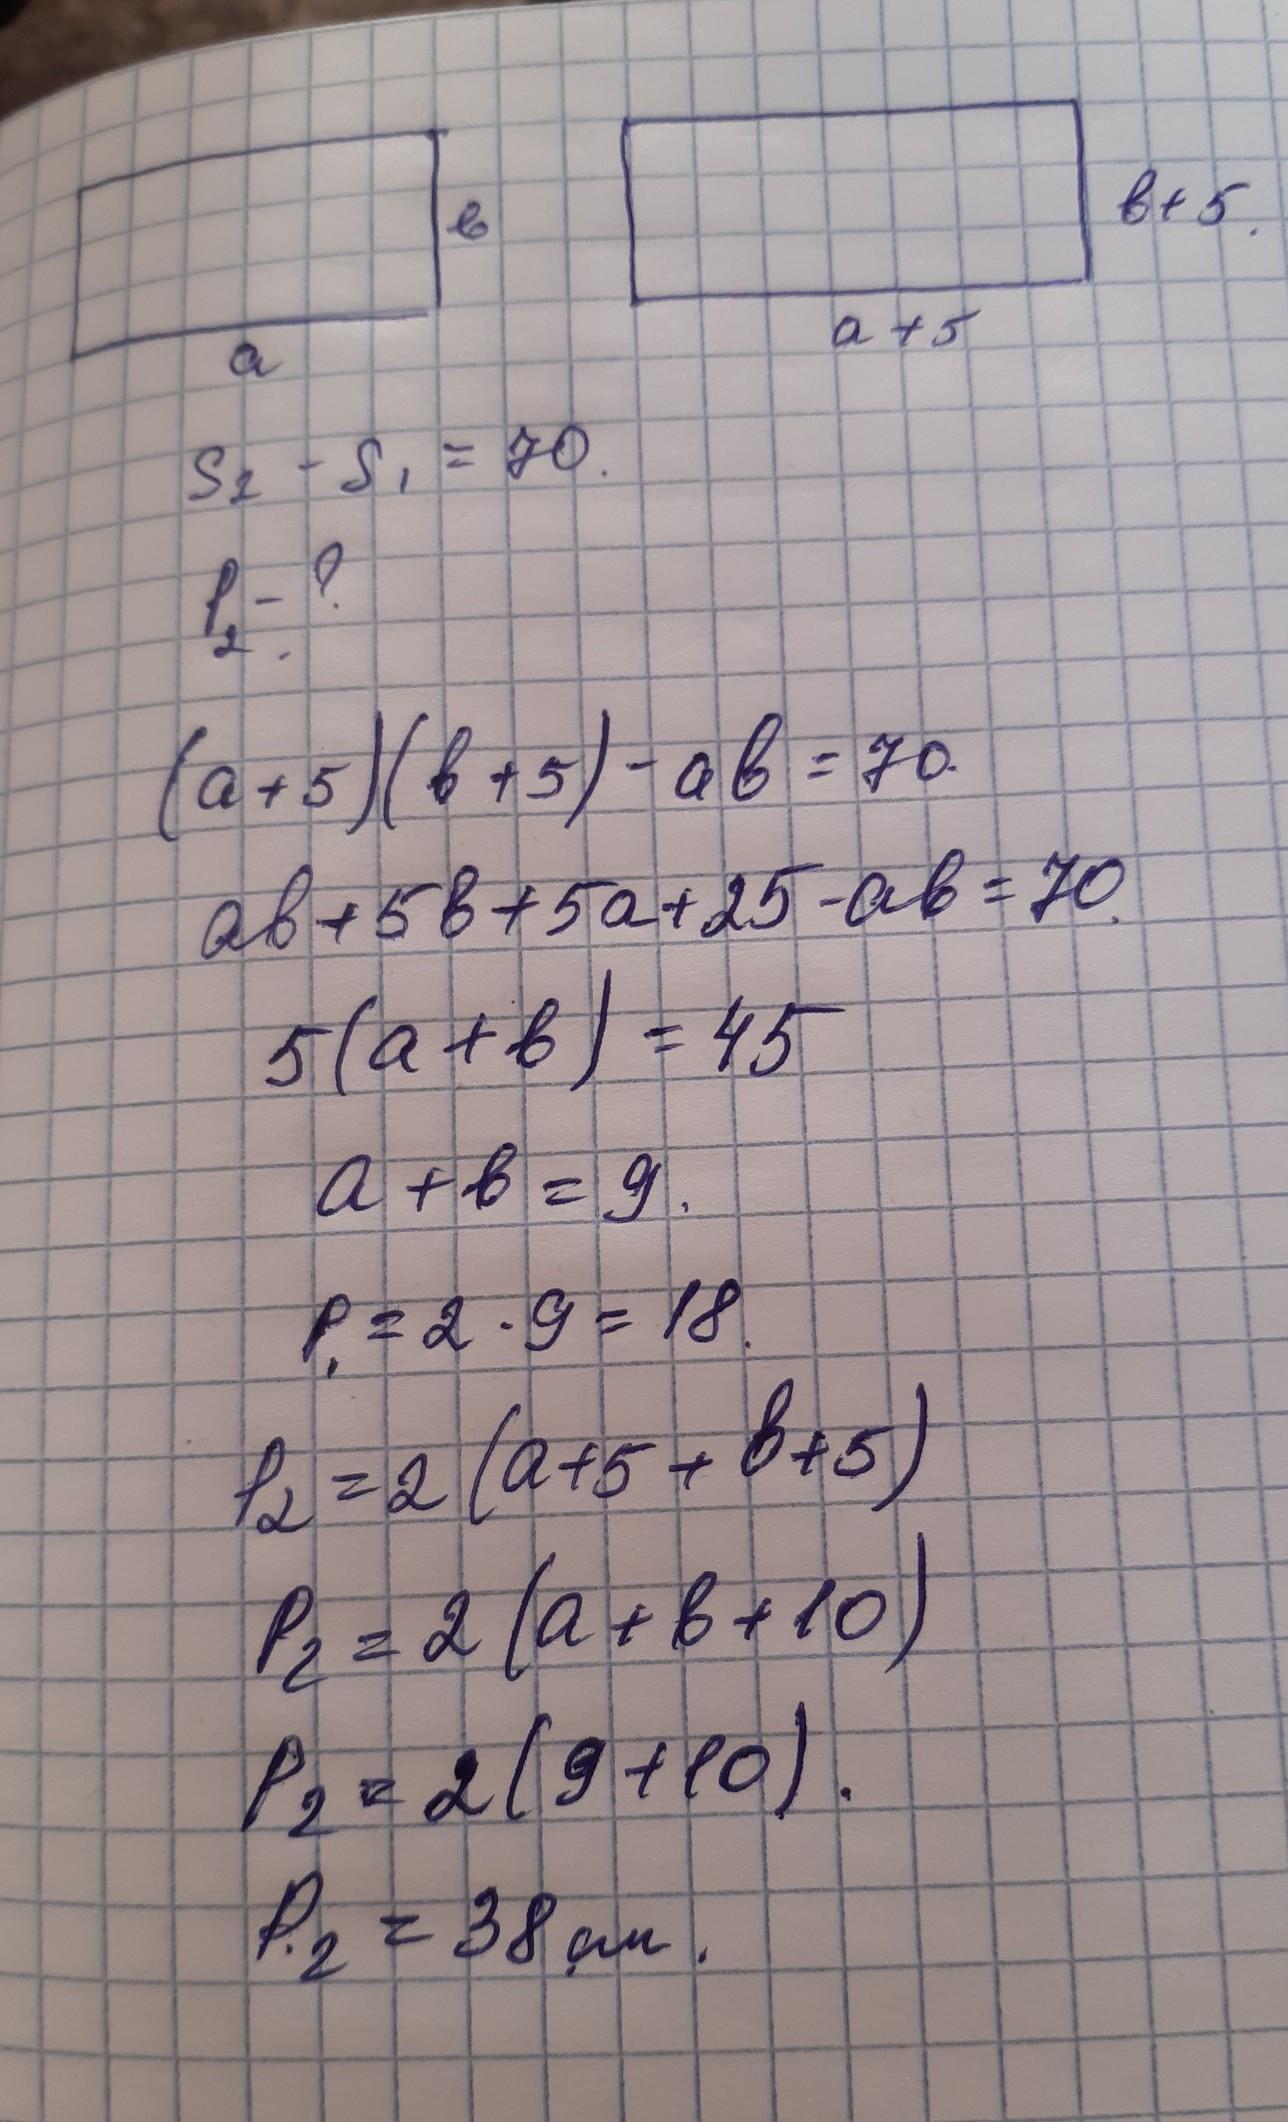 в
в+5.
а
а+5
S₂ - S₁ = 70.
P₂ - ?
(a+5)(в+5) - aв = 70.
aв+5в+5a+25-aв=70.
5(a+в) = 45
a+в = 9.
P₁ = 2·9 = 18.
P₂ = 2(a+5+в+5)
P₂ = 2(a+в+10)
P₂ = 2(9+10).
P₂ = 38 см.